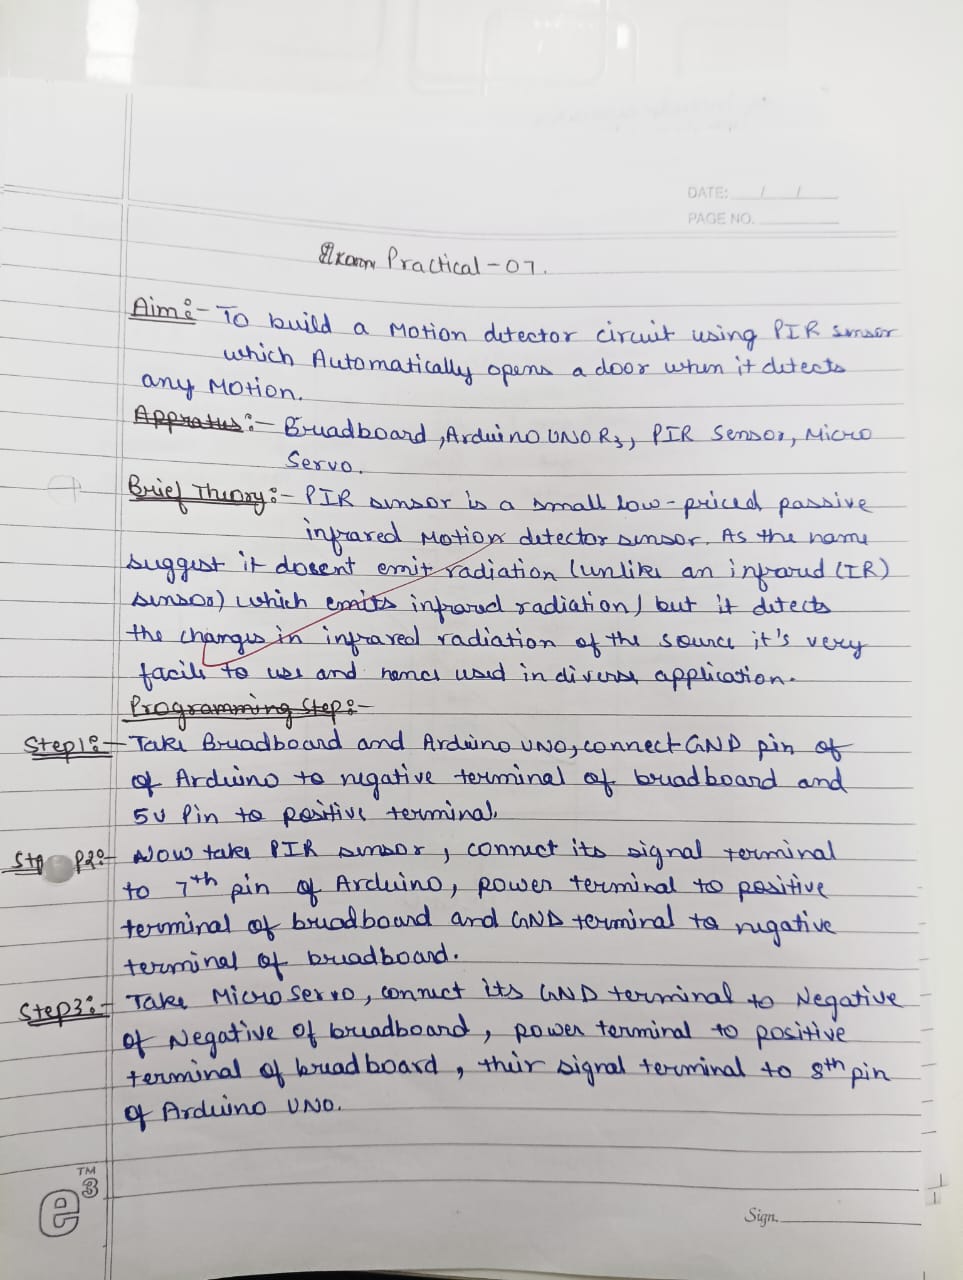 DATE: / /
PAGE NO.
Practical - 07.
Aim:- To build a Motion detector circuit using PIR sensor
which Automatically opens a door when it detects
any Motion.
Appratus:- Breadboard, Arduino UNO R3, PIR Sensor, Micro
Servo.
Brief Theory:- PIR sensor is a small low-priced passive
infrared Motion detector sensor. As the name
suggest it dosent emit radiation (unlike an infrared (IR)
sensor) which emits infrared radiation) but it detects
the changes in infrared radiation of the source it's very
facile to use and hence used in diverse application.
Programming Step:-
Step1:- Take Breadboard and Arduino UNO, connect GND pin of
of Arduino to negative terminal of breadboard and
5V Pin to positive terminal.
Step2:- Now take PIR sensor, connect its signal terminal
to 7th pin of Arduino, power terminal to positive
terminal of breadboard and GND terminal to negative
terminal of breadboard.
Step3:- Take Micro Servo, connect its GND terminal to Negative
of Negative of breadboard, power terminal to positive
terminal of breadboard, their signal terminal to 8th pin
of Arduino UNO.
e3 TM
Sign.